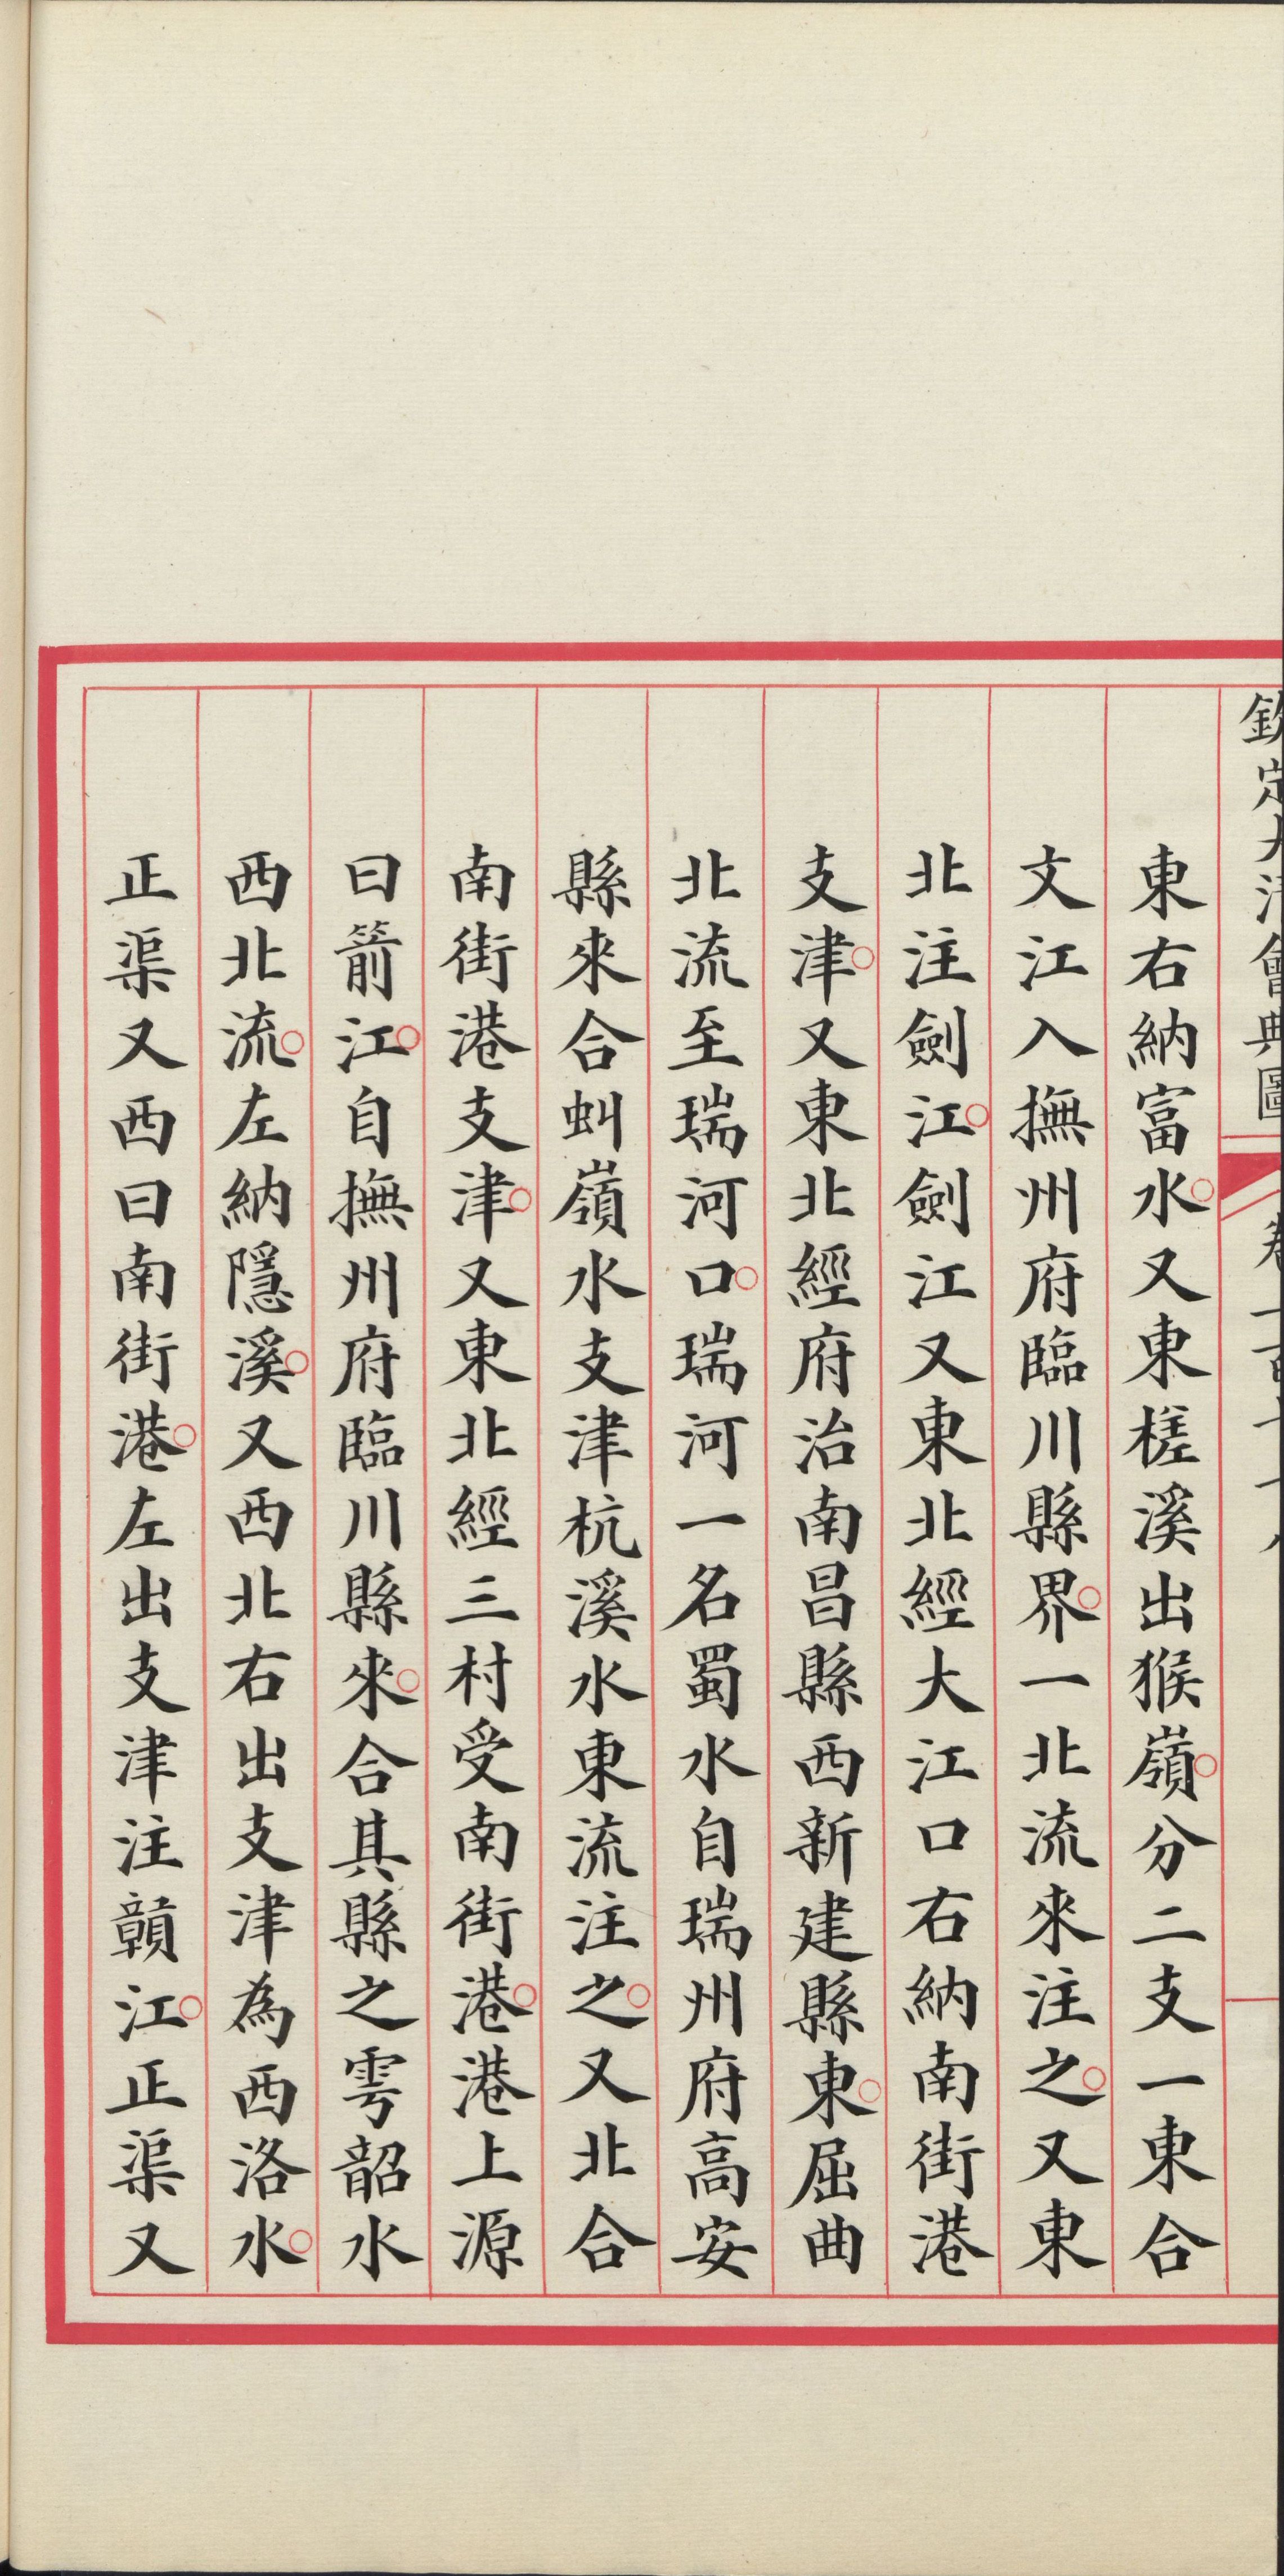 欽定大清會典圖
東右納富水。又東槎溪出猴嶺。分二支一東合
文江入撫州府臨川縣界。一北流來注之。又東
北注劍江。劍江又東北經大江口右納南街港
支津。又東北經府治南昌縣西新建縣東。屈曲
北流至瑞河口。瑞河一名蜀水自瑞州府高安
縣來合虯嶺水支津杭溪水東流注之。又北合
南街港支津。又東北經三村受南街港。港上源
曰箭江。自撫州府臨川縣來。合其縣之雩韶水
西北流。左納隱溪。又西北右出支津為西洛水。
正渠又西曰南街港。左出支津注贛江。正渠又